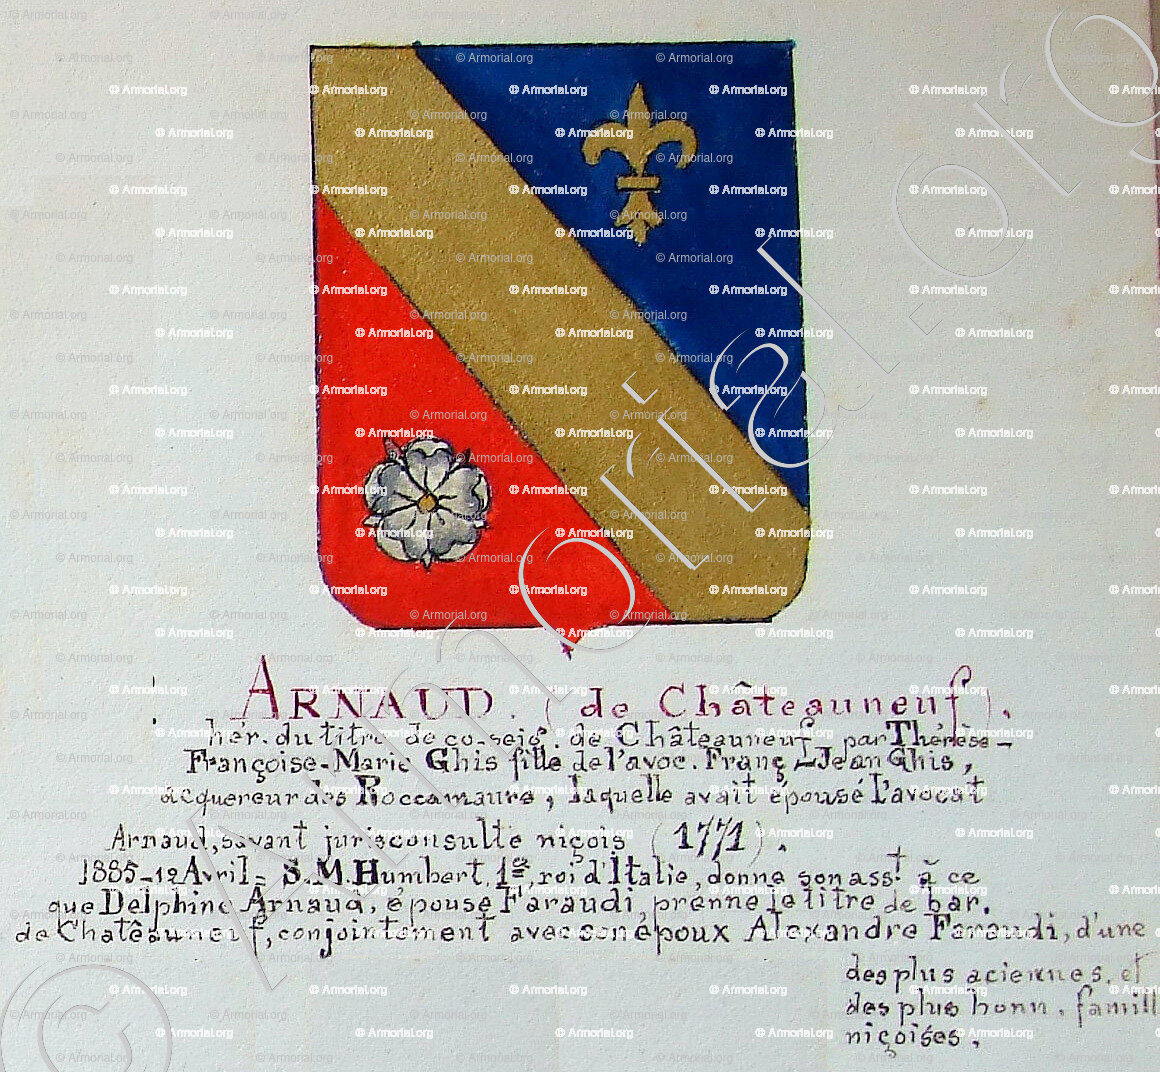 ARNAUD. (de Châteauneuf).
hér. du titre de co-seig. de Châteauneuf par Thérèse-
Françoise-Marie Ghis fille de l'avoc. Franç-Jean Ghis,
acquereur des Roccamaura, laquelle avait épousé l'avocat
Arnaud, savant jurisconsulte niçois (1771).
1885-12 Avril - S.M. Humbert 1er, roi d'Italie, donne son asst à ce
que Delphine Arnaud, épouse Faraudi, prenne le titre de bar.
de Chatêauneuf, conjointement avec son époux Alexandre Faraudi, d'une
des plus aciennes, et
des plus honn. famill
niçoises.
© Armorial.org